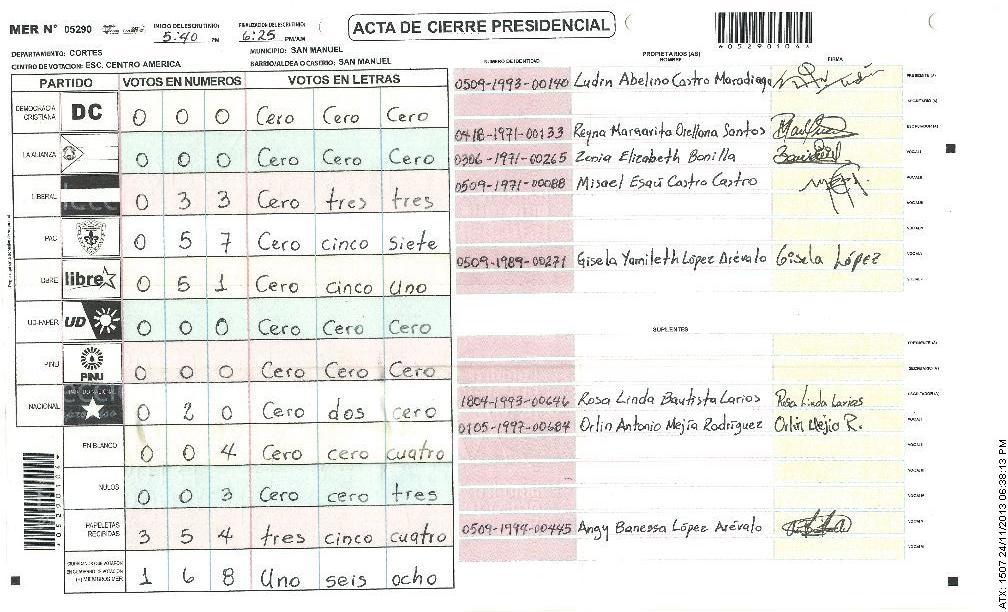 MER N° 05290
INICIO DEL ESCRUTINIO: 5:40 PM
FINALIZACION DEL ESCRUTINIO: 6:25 PM/AM
ACTA DE CIERRE PRESIDENCIAL
* 0 5 2 9 0 1 0 6 *
DEPARTAMENTO: CORTES
MUNICIPIO: SAN MANUEL
CENTRO DE VOTACION: ESC. CENTRO AMERICA
BARRIO/ALDEA O CASTRO: SAN MANUEL
PARTIDO VOTOS EN NUMEROS VOTOS EN LETRAS
DEMOCRACIA CRISTIANA DC 0 0 0 Cero Cero Cero
LA ALIANZA 0 0 0 Cero Cero Cero
LIBERAL 0 3 3 Cero tres tres
PAC 0 5 7 Cero cinco Siete
LIBRE libre 0 5 1 Cero cinco Uno
UD-FAPER UD 0 0 0 Cero Cero Cero
PINU PINU 0 0 0 Cero Cero Cero
NACIONAL 0 2 0 Cero dos cero
EN BLANCO 0 0 4 Cero cero cuatro
NULOS 0 0 3 Cero cero tres
PAPELETAS RECIBIDAS 3 5 4 tres cinco cuatro
1 6 8 Uno seis ocho
PROPIETARIOS (AS)
NUMERO DE IDENTIDAD NOMBRE FIRMA
0509-1993-00140 Ludin Abelino Castro Maradiaga PRESIDENTE (A)
SECRETARIO (A)
0418-1971-00133 Reyna Margarita Orellana Santos ESCRUTADOR (A)
0306-1971-60265 Zonia Elizabeth Bonilla VOCAL I
0509-1971-00088 Misael Esaú Castro Castro
0509-1989-00271 Gisela Yamileth López Arévalo Gisela López
SUPLENTES
PRESIDENTE (A)
SECRETARIO (A)
1804-1993-00646 Rosa Linda Bautista Larios Rosa Linda Larios ESCRUTADOR (A)
0105-1997-00684 Orlin Antonio Mejía Rodríguez Orlin Mejio R.
0509-1994-00445 Angy Banessa López Arévalo
ATX: 1507 24/11/2013 06:38:13 PM